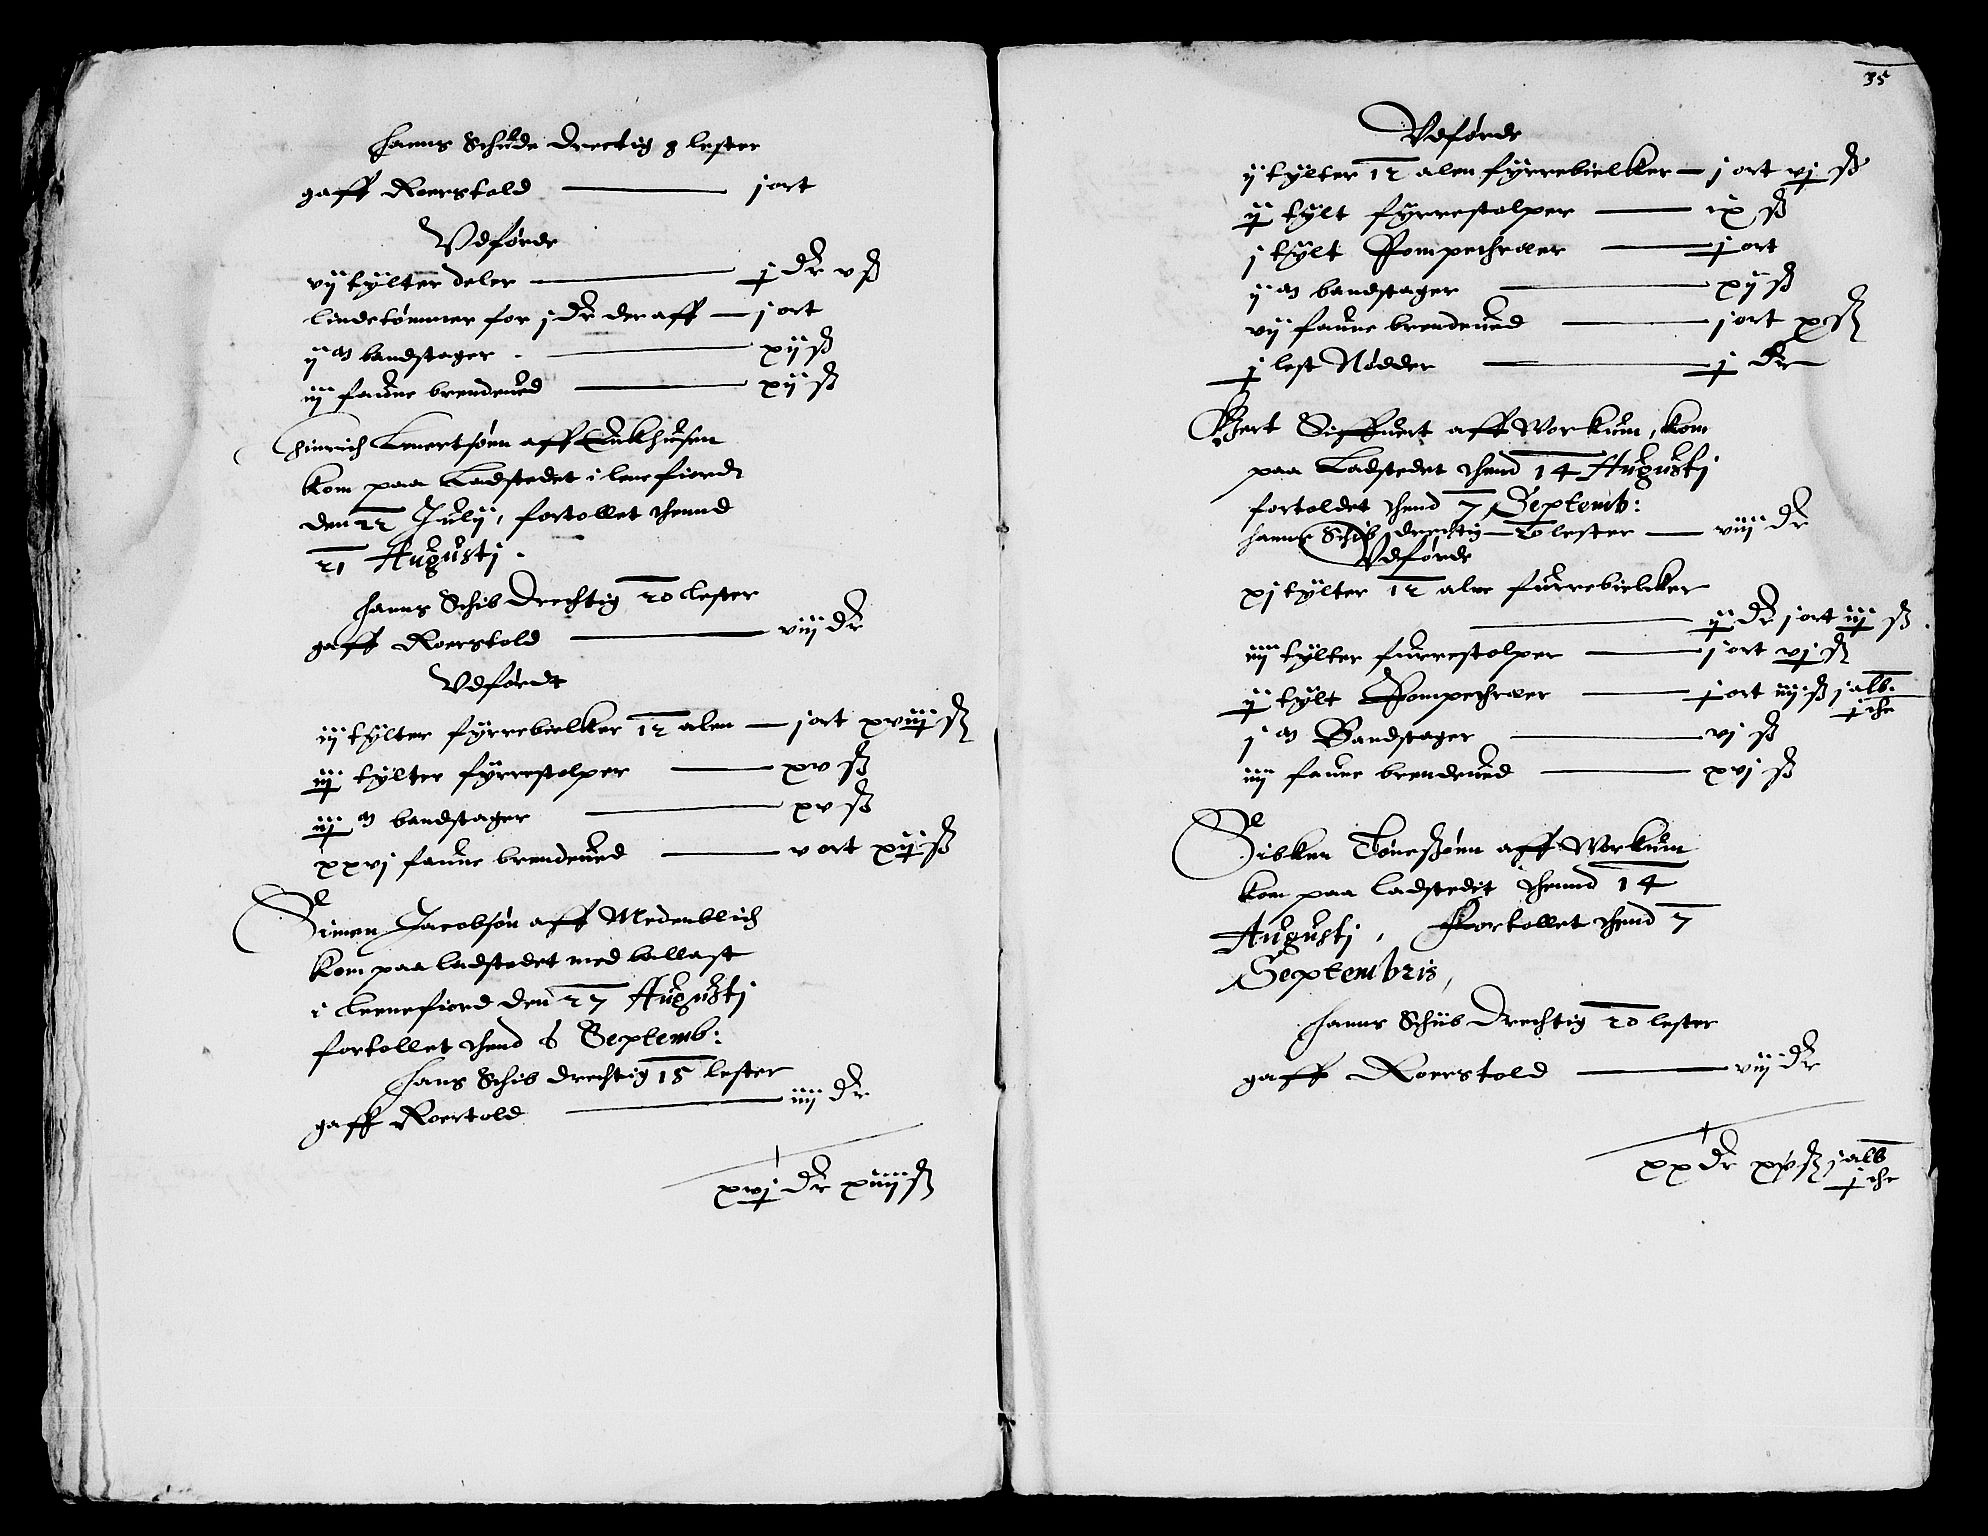 hanns Schude drectig 8 lester
gaff Roerstold — j ort
Vdførde
vij tylter deler — j dr v ß
lindetømmer for j dr der aff — j ort
ij m bandstager — xij ß
iij faune brendeued — xij ß
Hinrich Lenertsønn aff Enkhusen
kom paa Ladstedet i lenefiordt
den 22 July, fortollet thennd
21 Augustj.
hanns Schib drechtig 20 lester
gaff Roerstold — viij dr
Vdførdt
iij tylter fyrrebielker 12 alen — j ort xviij ß
iij tylter fyrrestolper — xv ß
iij m bandstager — xv ß
xxvj faune brendeued — v ort xij ß
Simen Jacobsøn aff Medenblich
kom paa ladstedet med ballast
i Leenefiord den 27 Augustj
fortollet thend 6 Septemb:
hans Schib drechtig 15 lester
gaff Roertold — iiij dr
xvj dr xiiij ß
35
Vdførde
ij tylter 12 alen fyrrebielker — j ort vj ß
ij tylt fyrrestolper — ix ß
j tylt Pompethræer — j ort
ij m bandstager — xij ß
vij faune brendeued — j ort x ß
j lest Nødder — j dr
Giert Siffuert aff Workum, kom
paa Ladstedet thend 14 Augustj
fortoldet thend 7 Septemb:
hanns Schib drechtig 20 lester — viij dr
Vdførde
xj tylter 12 alne furrebielcker
— ij dr j ort iij ß
iiij tylter furrestolper — j ort vj ß
ij tylt Pompethræer — j ort iiij ß j alb:
j the
j m Bandstager — vj ß
iiij faune brendeued — xvj ß
Sibken Tønesßønn aff Workum
kom paa ladstedit thennd 14
Augustj, Fortollet thend 7
Septembris,
hanns Schiib drechtig 20 lester
gaff Roerstold — viij dr
xx dr xv ß j alb
j the